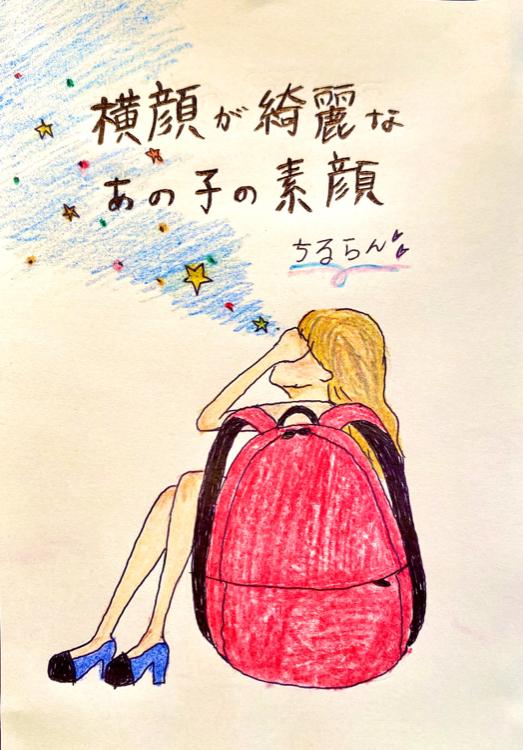 横顔が綺麗な
あの子の素顔
ちるらん